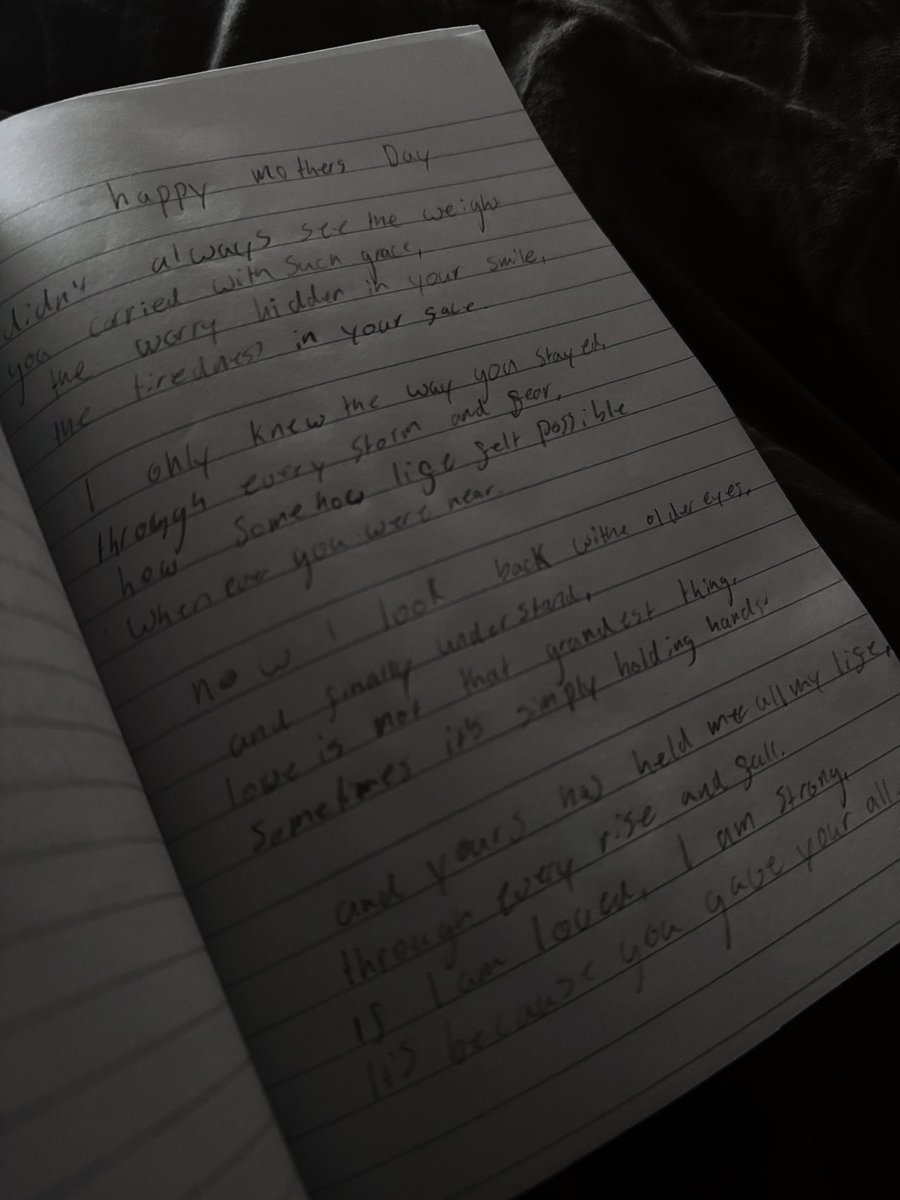 happy mothers Day
didn't always see the weight
you carried with such grace,
the worry hidden in your smile,
the tiredness in your face.
I only knew the way you stayed,
through every storm and fear,
how somehow life felt possible
when ever you were near.
now I look back withe older eyes,
and finally understand,
love is not that grandest thing,
Sometimes it's simply holding hands.
and yours has held me all my life,
through every rise and fall.
If I am loved, I am strong,
It's because you gave your all.